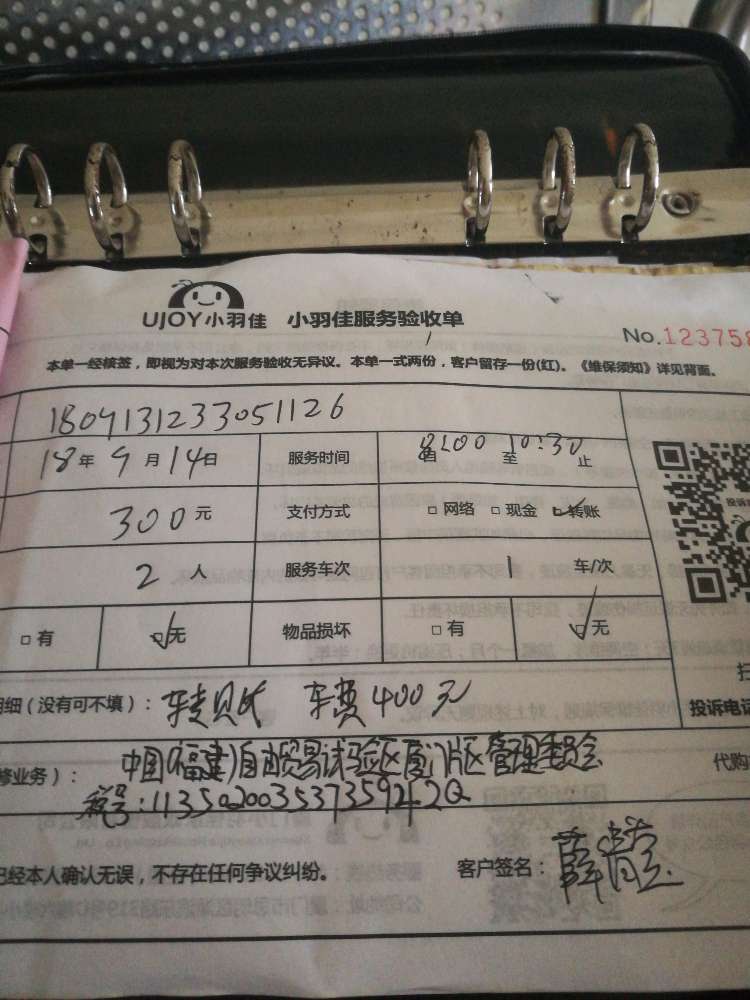 UJOY小羽佳 小羽佳服务验收单
No.123758
本单一经核签，即视为对本次服务验收无异议。本单一式两份，客户留存一份(红)。《维保须知》详见背面。
1809131233051126
18年 9月 14日 服务时间 自 8:00 至 10:30 止
300元 支付方式 □网络 □现金 ☑转账
2人 服务车次 1 车/次
□有 ☑无 物品损坏 □有 ☑无
明细（没有可不填）： 车费400元
投诉电话
修业务）： 中国(福建)自由贸易试验区厦门片区管理委员会
税号:11350200353735942Q
代购
已经本人确认无误，不存在任何争议纠纷。 客户签名：